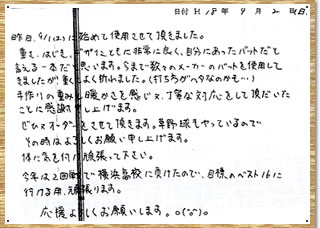 日付 H18年 9月 2日(日)
昨日、9/1(土)に始めて使用させて頂きました。
重さ、はじき、グがイこともに非常に良く、自分にあったバットだと
言える一本だと思います。今まで数々のメーカーのバットを使用して
きましたが重くてよく折れました。(打ち方がヘタなのかも…)
手作りの重みと暖かさを感じ、丁寧な対応をして頂だいた
ことに感謝申し上げます。
ぜひオーダーをさせて頂きます。草野球もやっているので
その時はよろしくお願い申し上げます。
体に気を付け頑張って下さい。
今年は2回戦で横浜高校に負けたので、目標のベスト16に
行ける用、頑張ります。
応援よろしくお願いします。